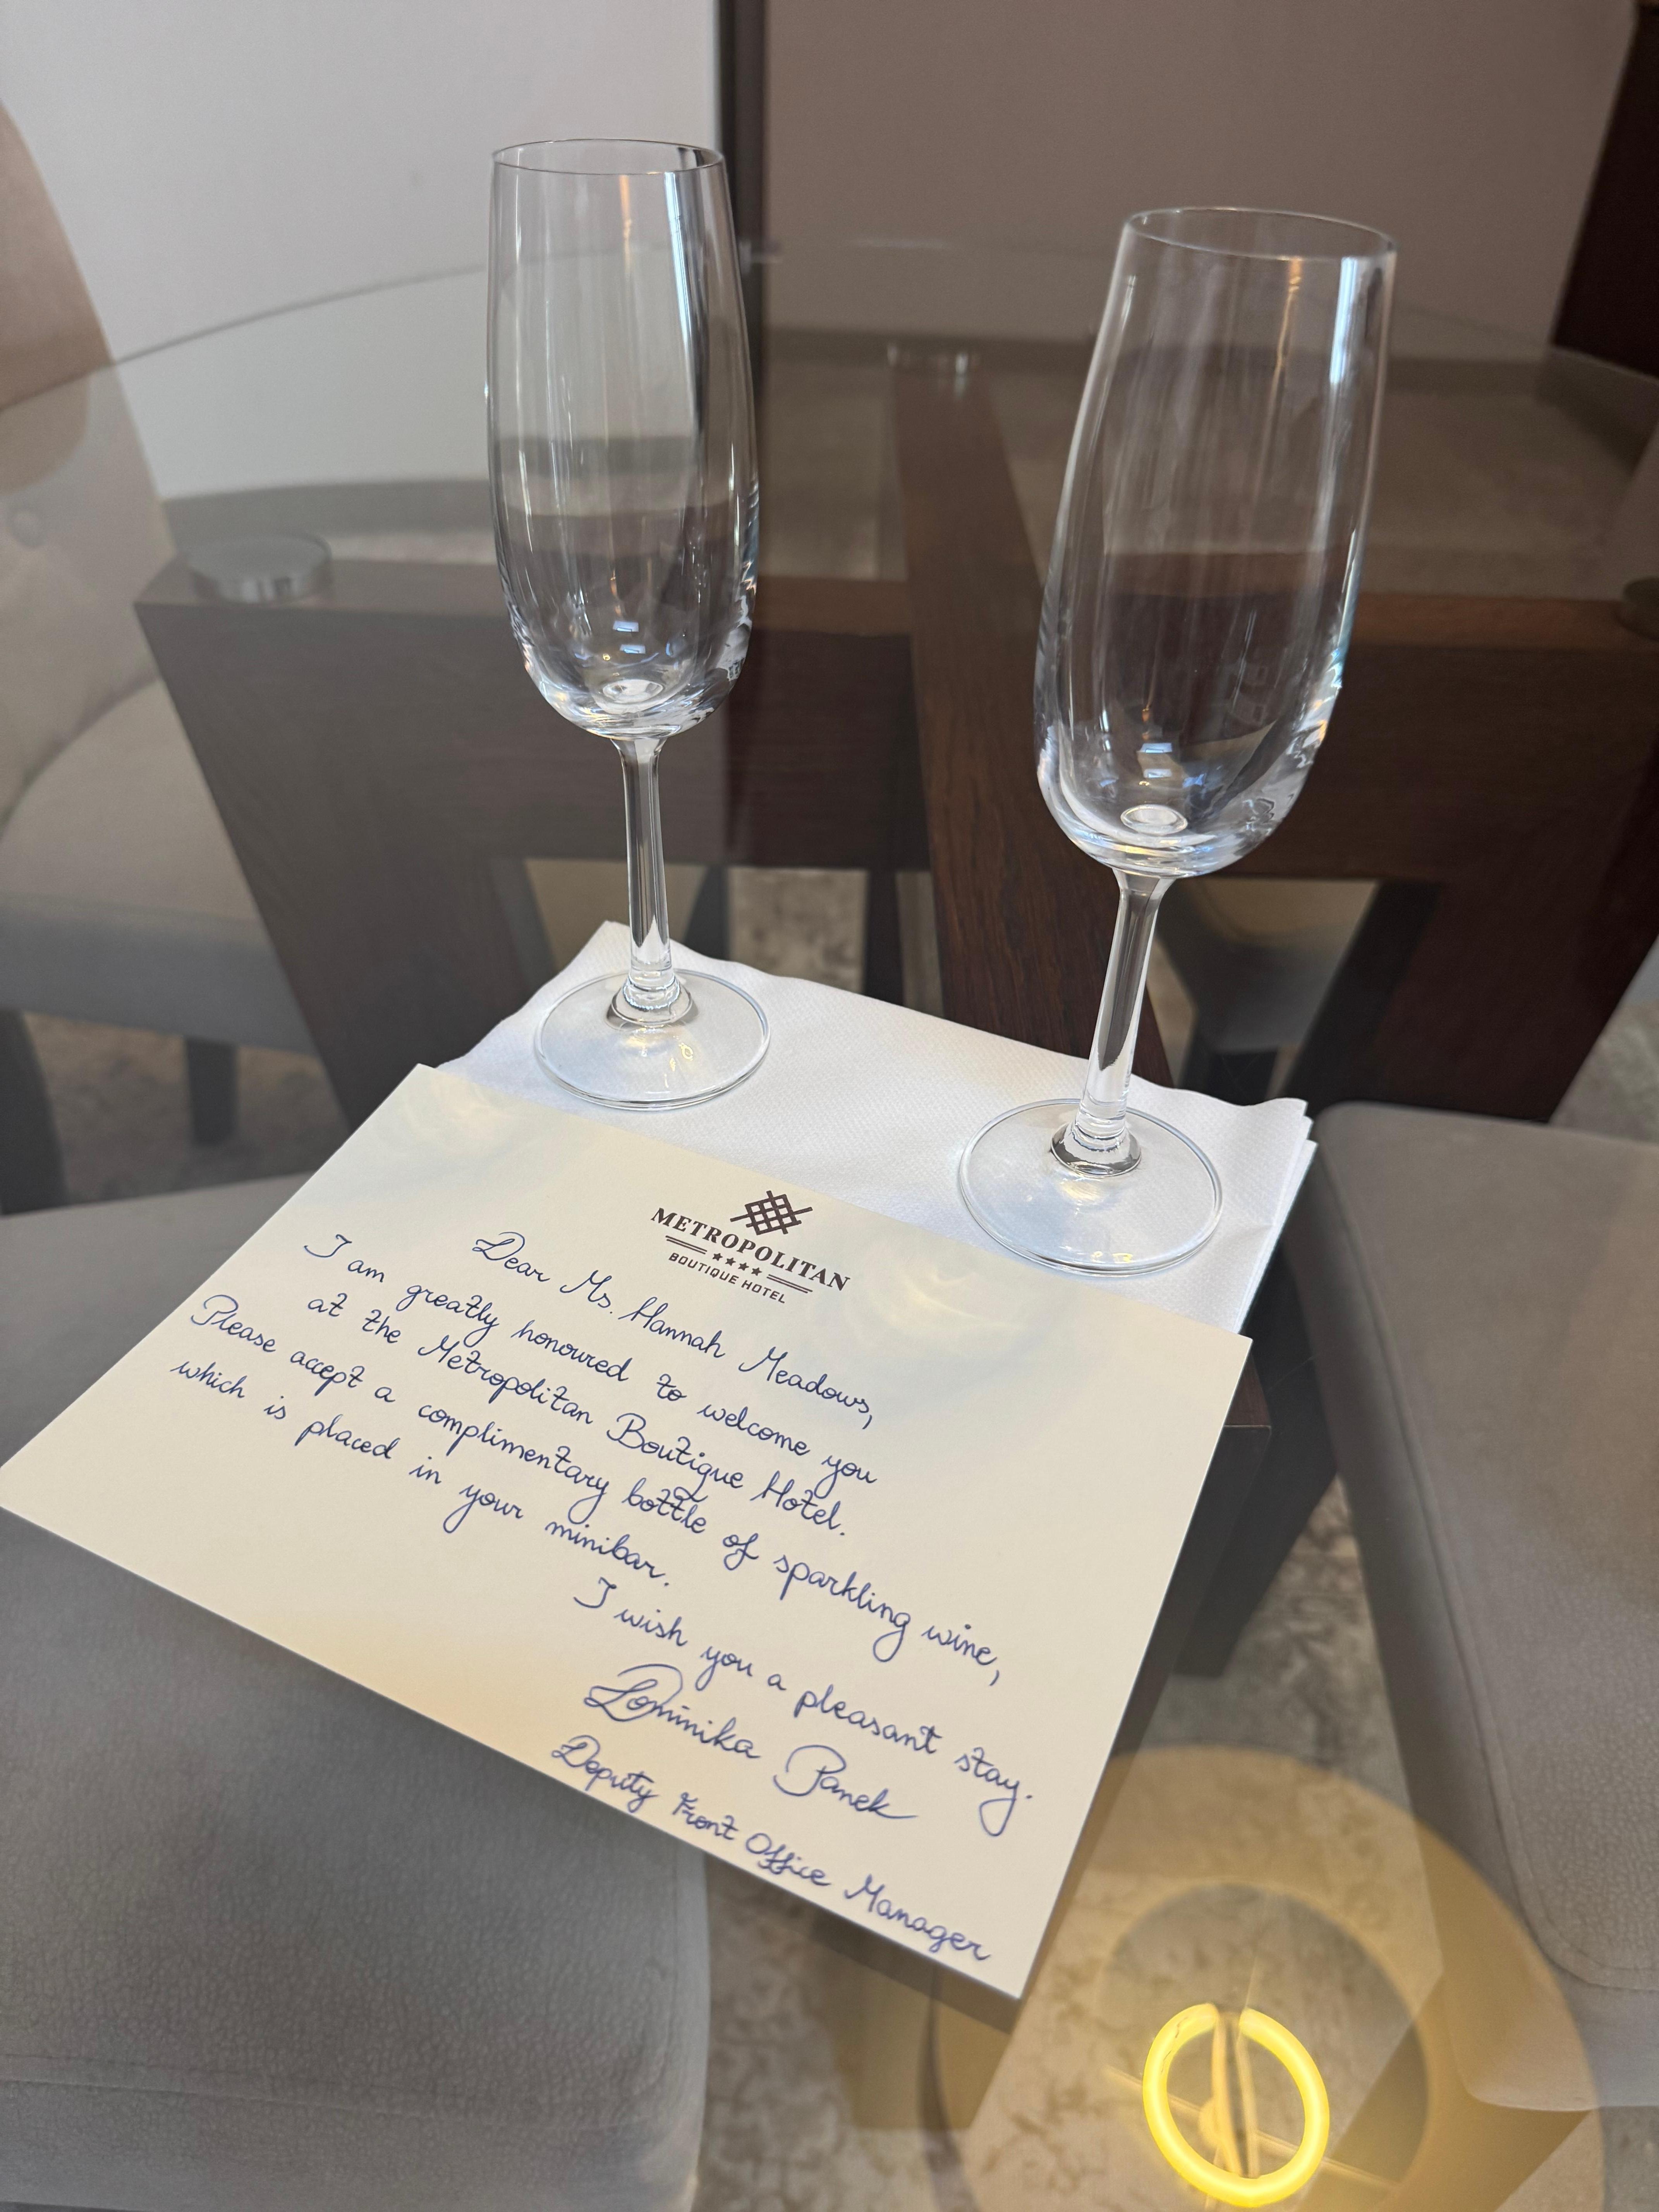 METROPOLITAN
★★★★
BOUTIQUE HOTEL
Dear Ms. Hannah Meadows,
I am greatly honoured to welcome you
at the Metropolitan Boutique Hotel.
Please accept a complimentary bottle of sparkling wine,
which is placed in your minibar.
I wish you a pleasant stay.
Dominika Panek
Deputy Front Office Manager